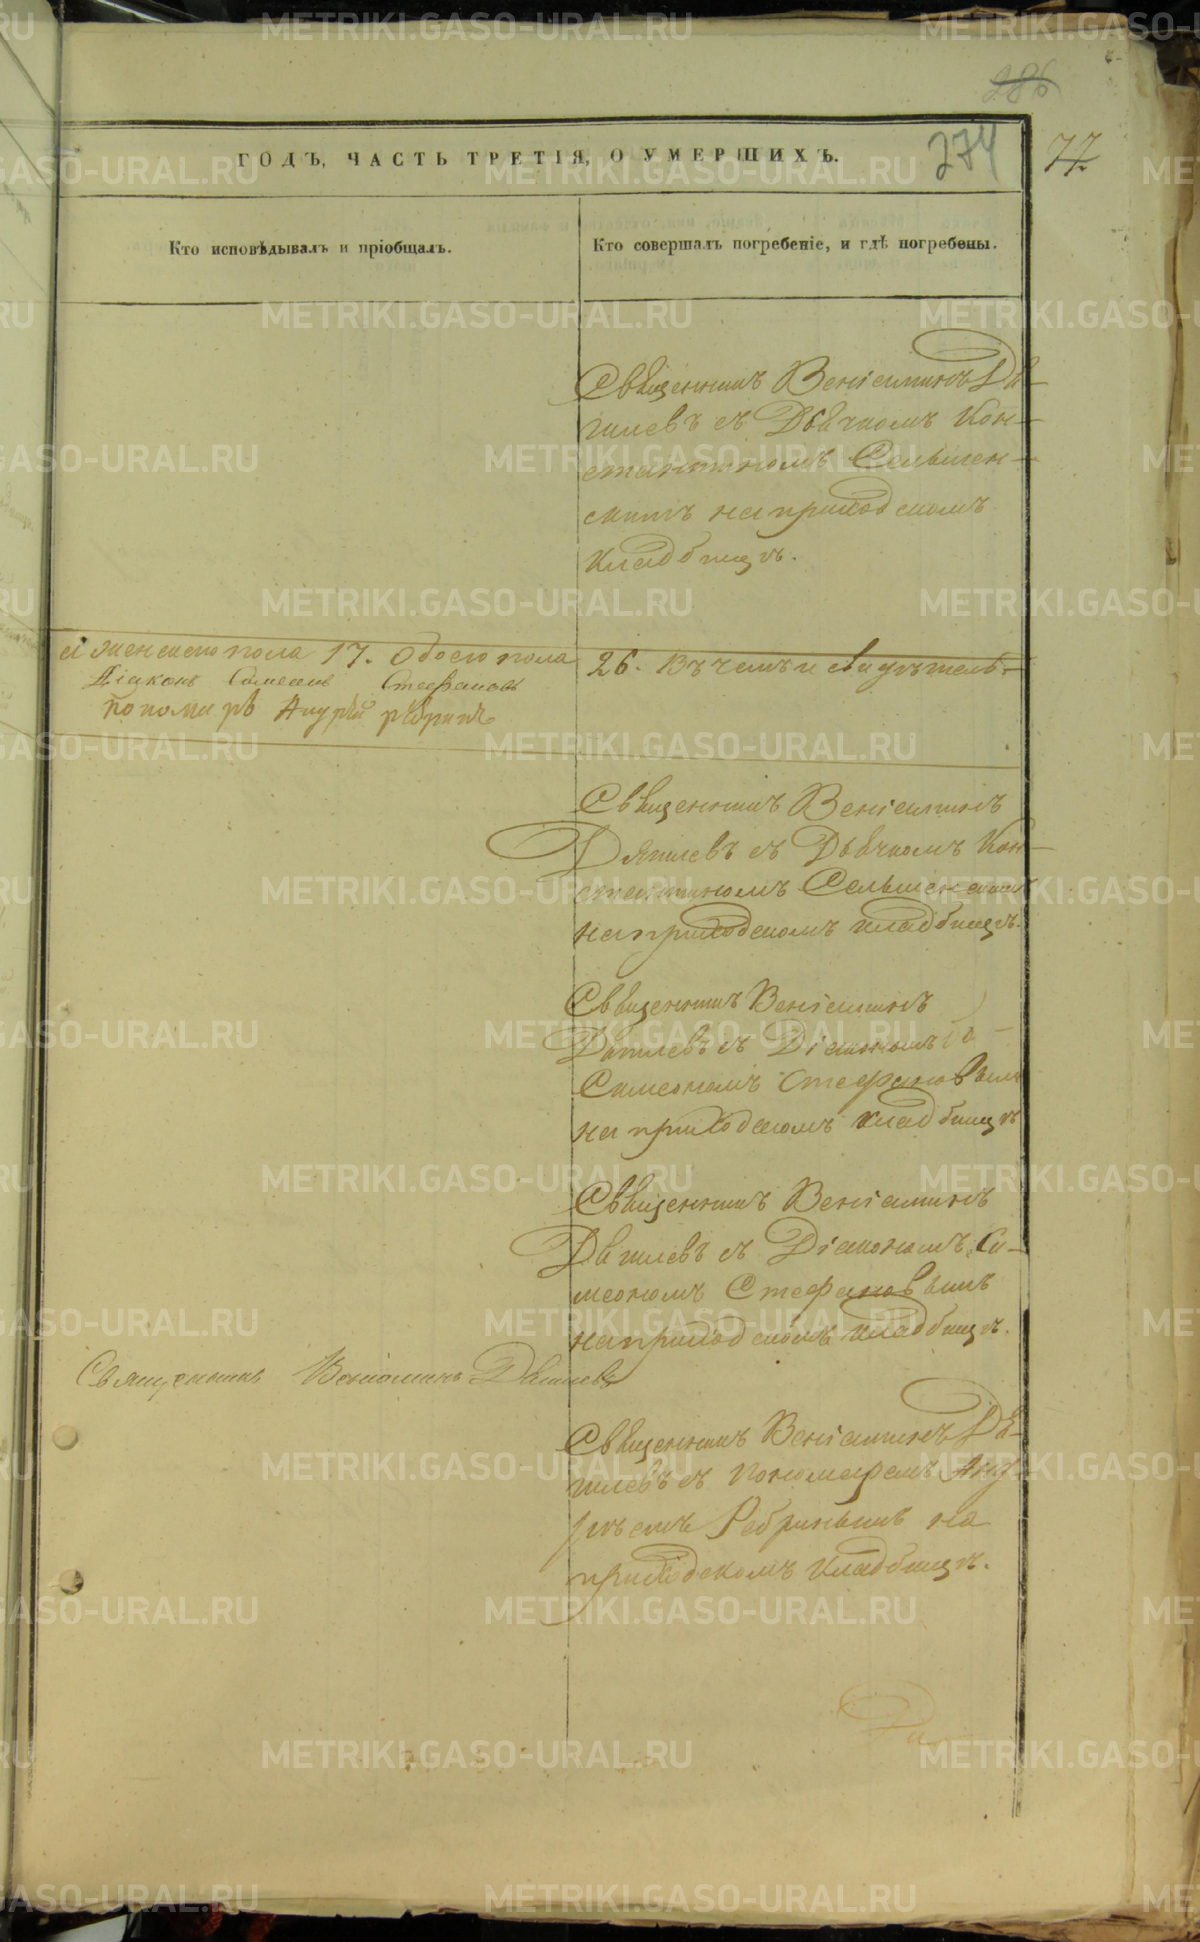 286
ГОДЪ, ЧАСТЬ ТРЕТІЯ, О УМЕРШИХЪ.
274
77
Кто исповѣдывалъ и пріобщалъ.
Кто совершалъ погребеніе, и гдѣ погребены.
Священникъ Веніаминъ Дя-
гилевъ съ Дьячкомъ Кон-
стантиномъ Сельмен-
скимъ на приходскомъ
кладбищѣ.
а женскаго пола 17. Обоего пола
26. Въ чемъ и свидѣтель-
Діаконъ Симеонъ Стефановъ
пономарь Андрей Ребринъ
Священникъ Веніаминъ
Дягилевъ съ Дьячкомъ Кон-
стантиномъ Сельменскимъ
на приходскомъ кладбищѣ.
Священникъ Веніаминъ
Дягилевъ съ Діакономъ
Симеономъ Стефановымъ
на приходскомъ кладбищѣ
Священникъ Веніаминъ
Дягилевъ съ Діакономъ Си-
меономъ Стефановымъ
на приходскомъ кладбищѣ.
Священникъ Веніаминъ Дягилевъ
Священникъ Веніаминъ Дя-
гилевъ съ Пономаремъ Анд-
реемъ Ребринымъ на
приходскомъ кладбищѣ.
METRIKI.GASO-URAL.RU